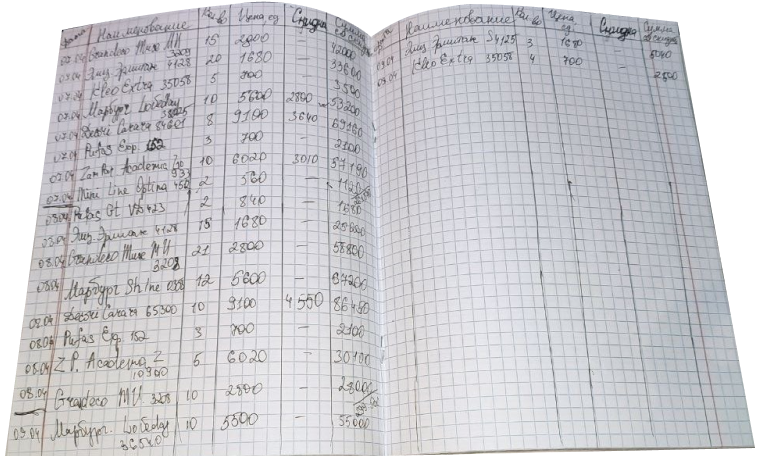 Дата Наименование Кол-во Цена ед Скидка Сумма со скидк
07.04 Grandeco Muse MU 3209 15 2800 — 42000
07.04 Элиз. Эрмитаж 4128 20 1680 — 33600
07.04 Kleo Extra 35058 5 700 — 3500
07.04 Марбург Loleday 10 5600 2800 53200
07.04 Sacara 84601 8 9100 3640 69160
07.04 Rufas Eop. 152 3 700 — 2100
07.04 Zambait Academia 10 6020 3010 57190
07.04 Mini Line Optina 456 2 560 — 1120
08.04 Rufas Gt 423 2 840 — 1680
08.04 Элиз. Эрмитаж 4128 15 1680
08.04 Grandeco Muse MU 3208 21 2800 — 58800
08.04 Марбург Shine 12 5600 —
08.04 Sacara 65300 10 9100 4550 86450
08.04 Rufas Eop 152 3 700 — 2100
08.04 Z.P. Academia Z 5 6020 — 30100
08.04 Grandeco MU 3208 10 2800 — 28000
09.04 Марбург. Loleday 36540 10 5500 — 55000
Дата Наименование Кол-во Цена ед Скидка Сумма со скидк
09.04 Элиз. Эрмитаж 54125 3 1680 5040
09.04 Kleo Extra 35058 4 700 — 2800